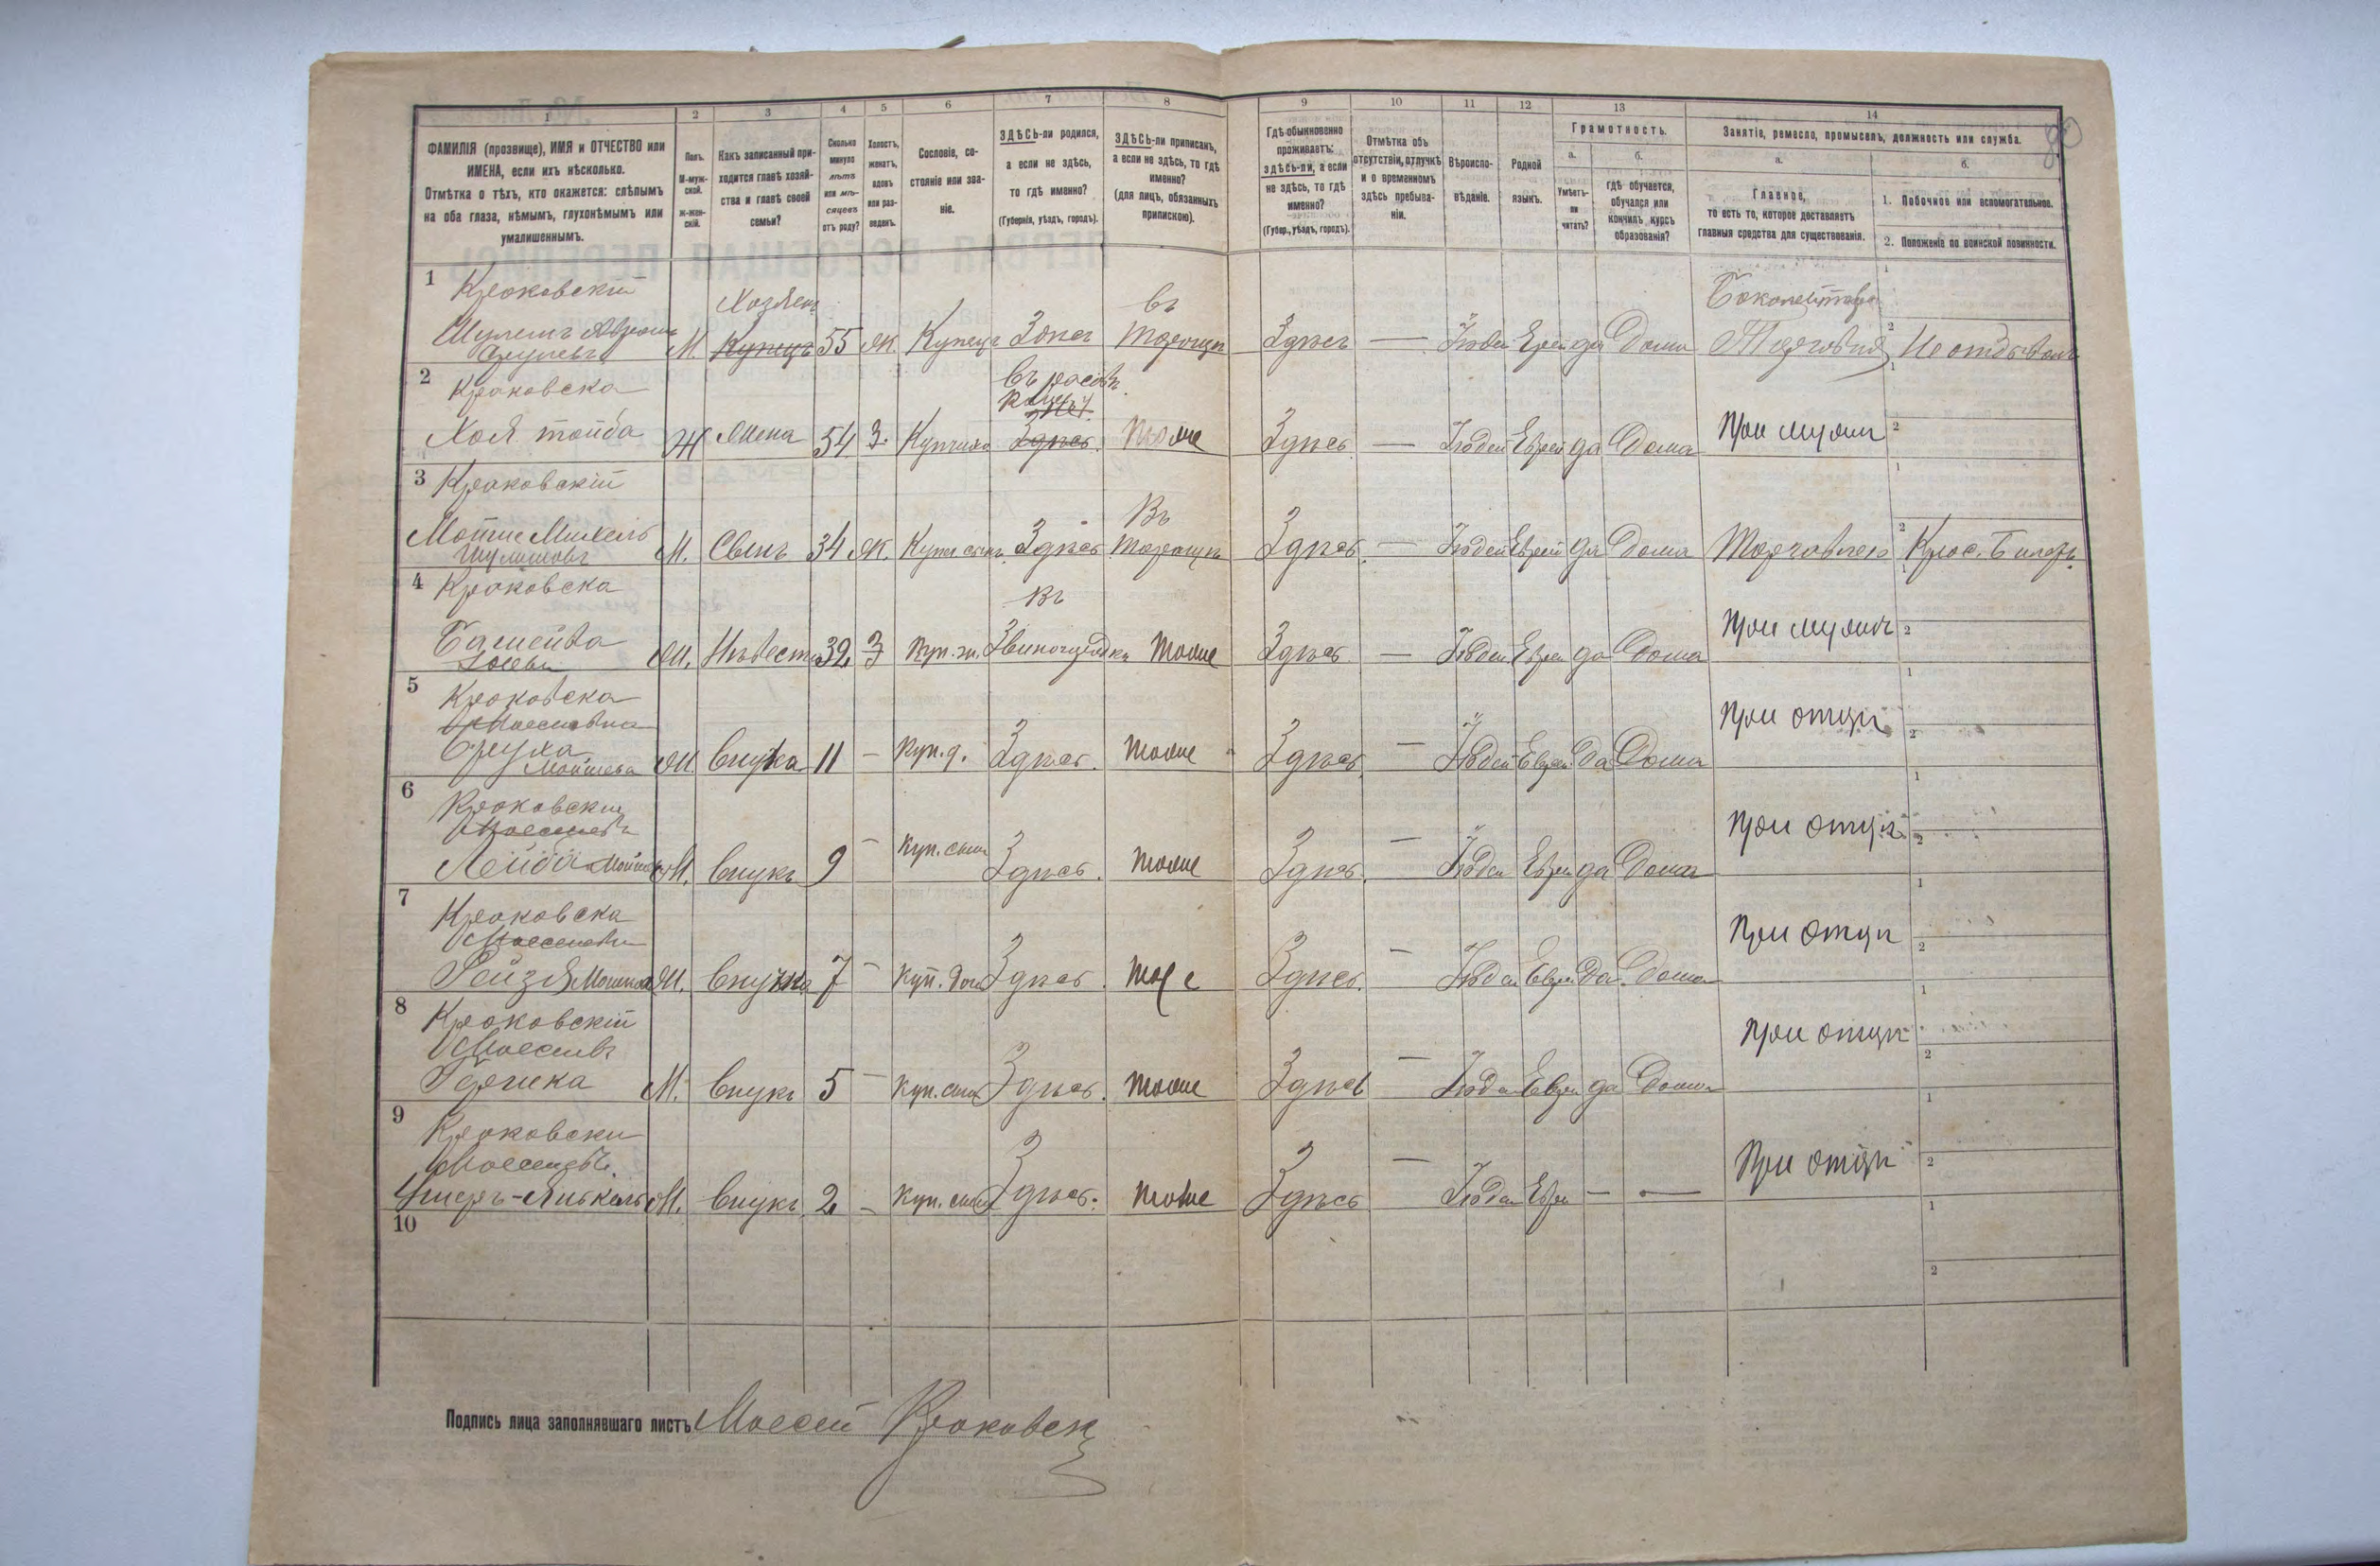 1 2 3 4 5 6 7 8 9 10 11 12 13 14
ФАМИЛІЯ (прозвище), ИМЯ и ОТЧЕСТВО или
ИМЕНА, если ихъ нѣсколько.
Отмѣтка о тѣхъ, кто окажется: слѣпымъ
на оба глаза, нѣмымъ, глухонѣмымъ или
умалишеннымъ.
Полъ.
М-муж-
ской.
Ж-жен-
скій.
Какъ записанный при-
ходится главѣ хозяй-
ства и главѣ своей
семьи?
Сколько
минуло
лѣтъ
или мѣ-
сяцевъ
отъ роду?
Холостъ,
женатъ,
вдовъ
или раз-
веденъ.
Сословіе, со-
стояніе или зва-
ніе.
ЗДѢСЬ-ли родился,
а если не здѣсь,
то гдѣ именно?
(Губернія, уѣздъ, городъ).
ЗДѢСЬ-ли приписанъ,
а если не здѣсь, то гдѣ
именно?
(для лицъ, обязанныхъ
припискою).
Гдѣ обыкновенно
проживаетъ:
здѣсь-ли, а если
не здѣсь, то гдѣ
именно?
(Губер., уѣздъ, городъ).
Отмѣтка объ
отсутствіи, отлучкѣ
и о временномъ
здѣсь пребыва-
ніи.
Вѣроиспо-
вѣданіе.
Родной
языкъ.
Грамотность.
а.
Умѣетъ-
ли
читать?
б.
гдѣ обучается,
обучался или
кончилъ курсъ
образованія?
Занятіе, ремесло, промыселъ, должность или служба.
а.
Главное,
то есть то, которое доставляетъ
главныя средства для существованія.
б.
1. Побочное или вспомогательное.
2. Положеніе по воинской повинности.
1 Краковскій
Хозяинъ въ
М. Купецъ 55 Ж. Купецъ Здѣсь Здѣсь — Іюдей Еврей да Дома Торговля Не отбывалъ
2 Краковска
Хая тойба Ж жена 54 З. Купчиха Здѣсь. тоже Здѣсь — Іюдей Еврей да Дома При мужи
3 Краковскій
Въ
М. Сынъ 34 Ж. Здѣсь Здѣсь — Іюдей Еврей да Дома Торговлею
4 Краковска
Въ
Невестка 32 З Куп. ж. Звиногродки тоже Здѣсь — Іюдей Еврей да Дома При мужи
5 Краковска
Внучка 11 — Куп. д. Здѣсь. тоже Здѣсь — Іюдей Еврей да Дома При отци
6 Краковскій
Лейба М. Внукъ 9 — Куп. сынъ Здѣсь. тоже Здѣсь. — Іюдей Еврей да Дома При отци
7 Краковска
Рейзя Внучка 7 — Куп. доч Здѣсь. Здѣсь. — Іюдей Еврей да Дома При отци
8 Краковскій
М. Внукъ 5 — Куп. сынъ Здѣсь. тоже Здѣсь — Іюдей Еврей да Дома При отци
9 Краковскій
М. Внукъ 2 — Куп. сынъ Здѣсь. тоже Здѣсь — Іюдей Еврей — — При отци
10
Подпись лица заполнявшаго листъ Моссей Краковск